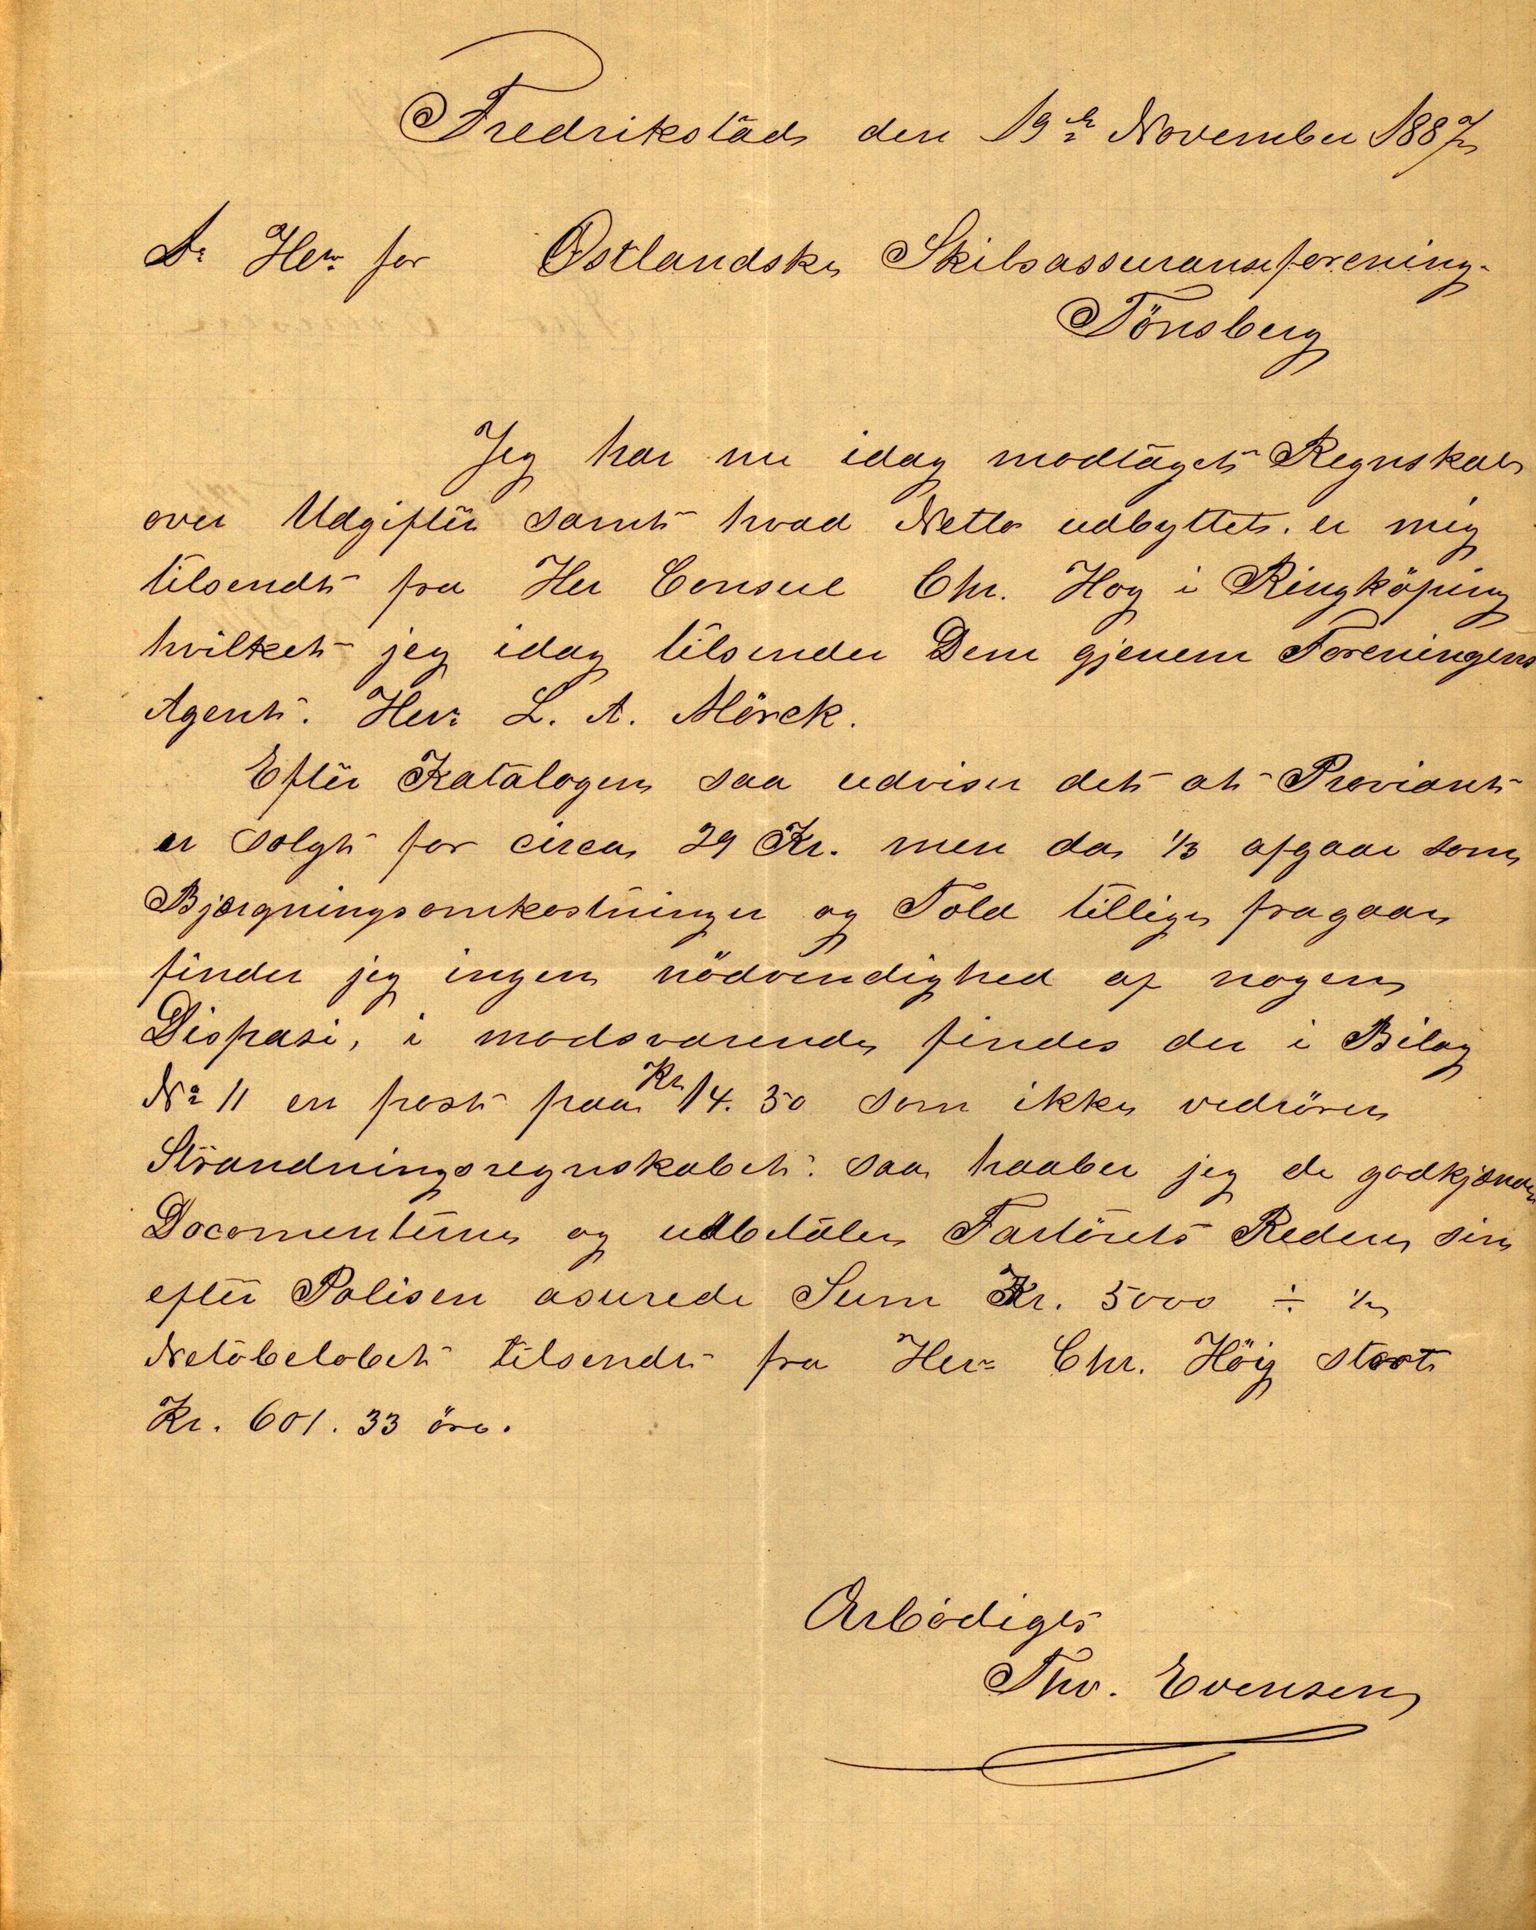 Fredrikstad den 19de November 1887
D. Herr for Østlandske Skibsassuranseforening.
Tönsberg
Jeg har nu idag modtaget Regnskab
over Udgifter samt hvad Netto udbyttet er mig
tilsendt fra Her Consul Chr. Hög i Ringköping
hvilket jeg idag tilsender Dem gjenem Foreningens
Agent. Herr L. A. Mörck.
Efter Katalogen saa udviser det at Proviant
er solgt for circa 29 Kr. men da 1/3 afgaar som
Bjærgningsomkostninger og Told tillige fragaar
finder jeg ingen nödvendighed af nogen
Dispasi, i modsvarende findes der i Bilag
No 11 en post paa Kr 14.50 som ikke vedrörer
Strandningsregnskabet. saa haaber jeg de godkjender
Documenterne og udbetaler Fartöiets Redere sin
efter Polisen asurede Sum Kr. 5000 ÷
Netobelöbet tilsendt fra Herr Chr. Höig stort
Kr. 601.33 öre.
Ærbödigst
Thv. Evensen